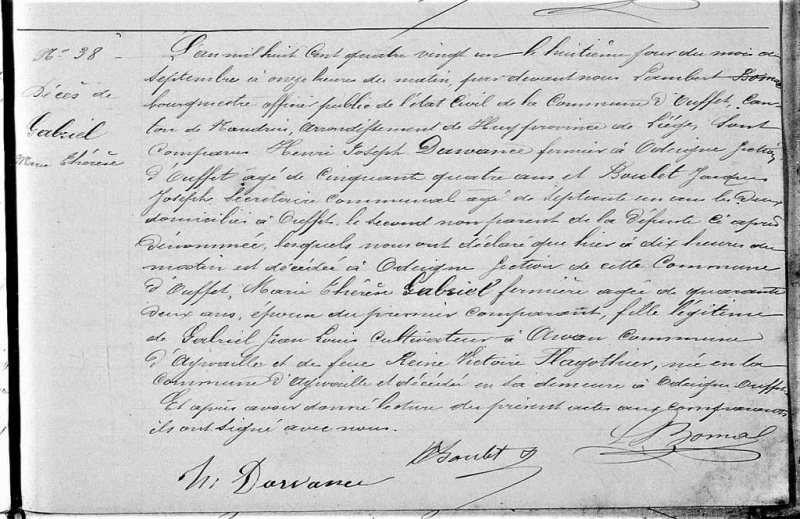 N° 38
Décès de
Gabriel
Marie Thérèse
L'an mil huit cent quatre vingt un le huitième jour du mois de
Septembre à onze heures du matin, par devant nous Lambert Bomal
bourgmestre officier public de l'état civil de la Commune d'Ouffet, Can-
ton de Nandrin, arrondissement de Huy province de Liége, Sont
Comparus Henri Joseph Dawance fermier à Oderigne section
d'Ouffet agé de Cinquant quatre ans et Boulet Jacques
Joseph Secretaire Communal agé de Septante un ans les deux
domiciliés à Ouffet, le second non parent de la Défunte Ci après
Dénommée, lesquels nous ont déclaré que hier à dix heures du
matin est décédée à Oderigne section de cette Commune
d'Ouffet, Marie Thérèse Gabriel fermière agée de quarante
deux ans, épouse du premier comparant, fille légitime
de Gabriel Jean Louis Cultivateur à Awan Commune
d'Aywaille et de feue Reine Victoire Hagothier, née en la
Commune d'Aywaille et décédée en sa demeure à Oderigne Ouffet.
Et après avoir donné lecture du présent actes aux comparants
ils ont signé avec nous.
L Bomal
Boulet
H: Dawance